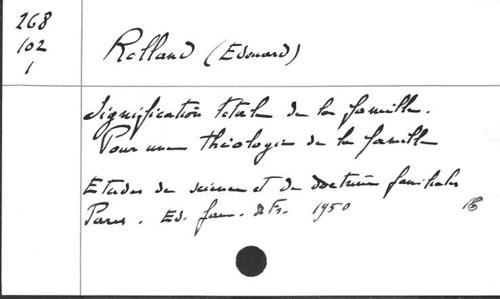 268
102
1
Rolland (Edouard)
Signification totale de la famille.
Pour une théologie de la famille
Etudes de science et de doctrine familiales
Paris. Ed. fam. de Fr. 1950